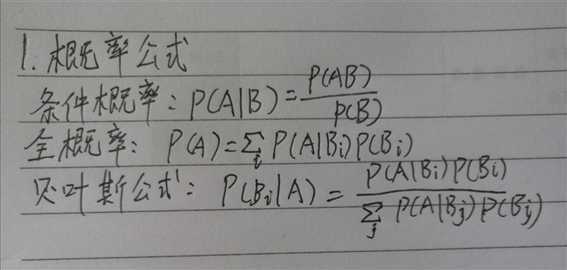 1. 概率公式
条件概率: P(A|B) = P(AB) / P(B)
全概率: P(A) = ∑i P(A|Bi)P(Bi)
贝叶斯公式: P(Bi|A) = P(A|Bi)P(Bi) / ∑j P(A|Bj)P(Bj)